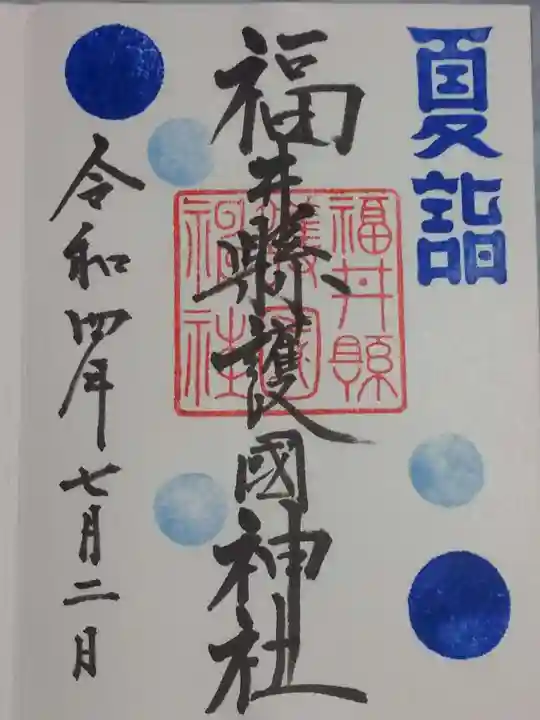 夏詣
福井縣護國神社
福井縣
護國
神社
令和四年七月二日